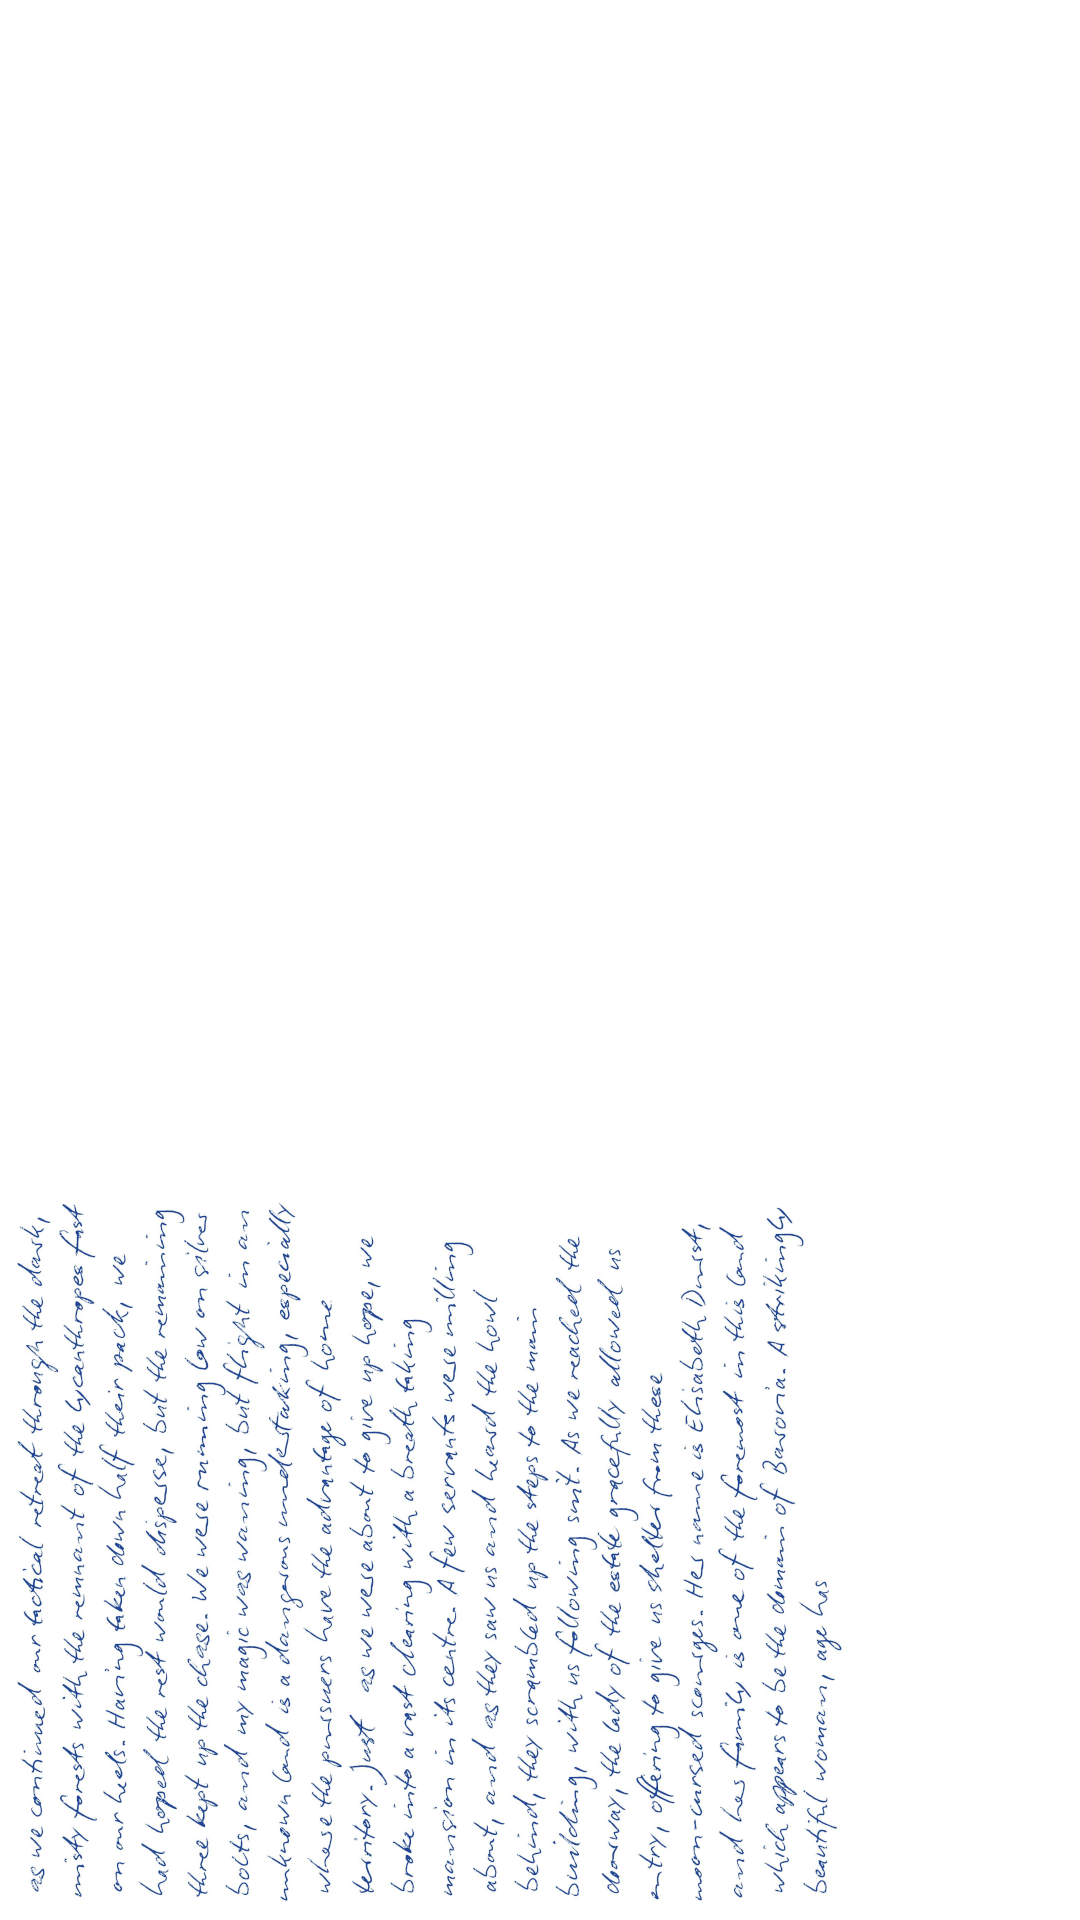 as we continued our tactical retreat through the dark,
misty forests with the remnant of the lycanthropes fast
on our heels. Having taken down half their pack, we
had hoped the rest would disperse, but the remaining
three kept up the chase. We were running low on silver
bolts, and my magic was waning, but flight in an
unknown land is a dangerous understaking, especially
where the pursuers have the advantage of home
territory. Just as we were about to give up hope, we
broke into a vast clearing with a breath taking
mansion in its centre. A few servants were milling
about, and as they saw us and heard the howl
behind, they scrambled up the steps to the main
building, with us following suit. As we reached the
doorway, the lady of the estate gracefully allowed us
entry, offering to give us shelter from these
moon-cursed scourges. Her name is Elisabeth Durst,
and her family is one of the foremost in this land
which appears to be the domain of Barovia. A strikingly
beautiful woman, age has